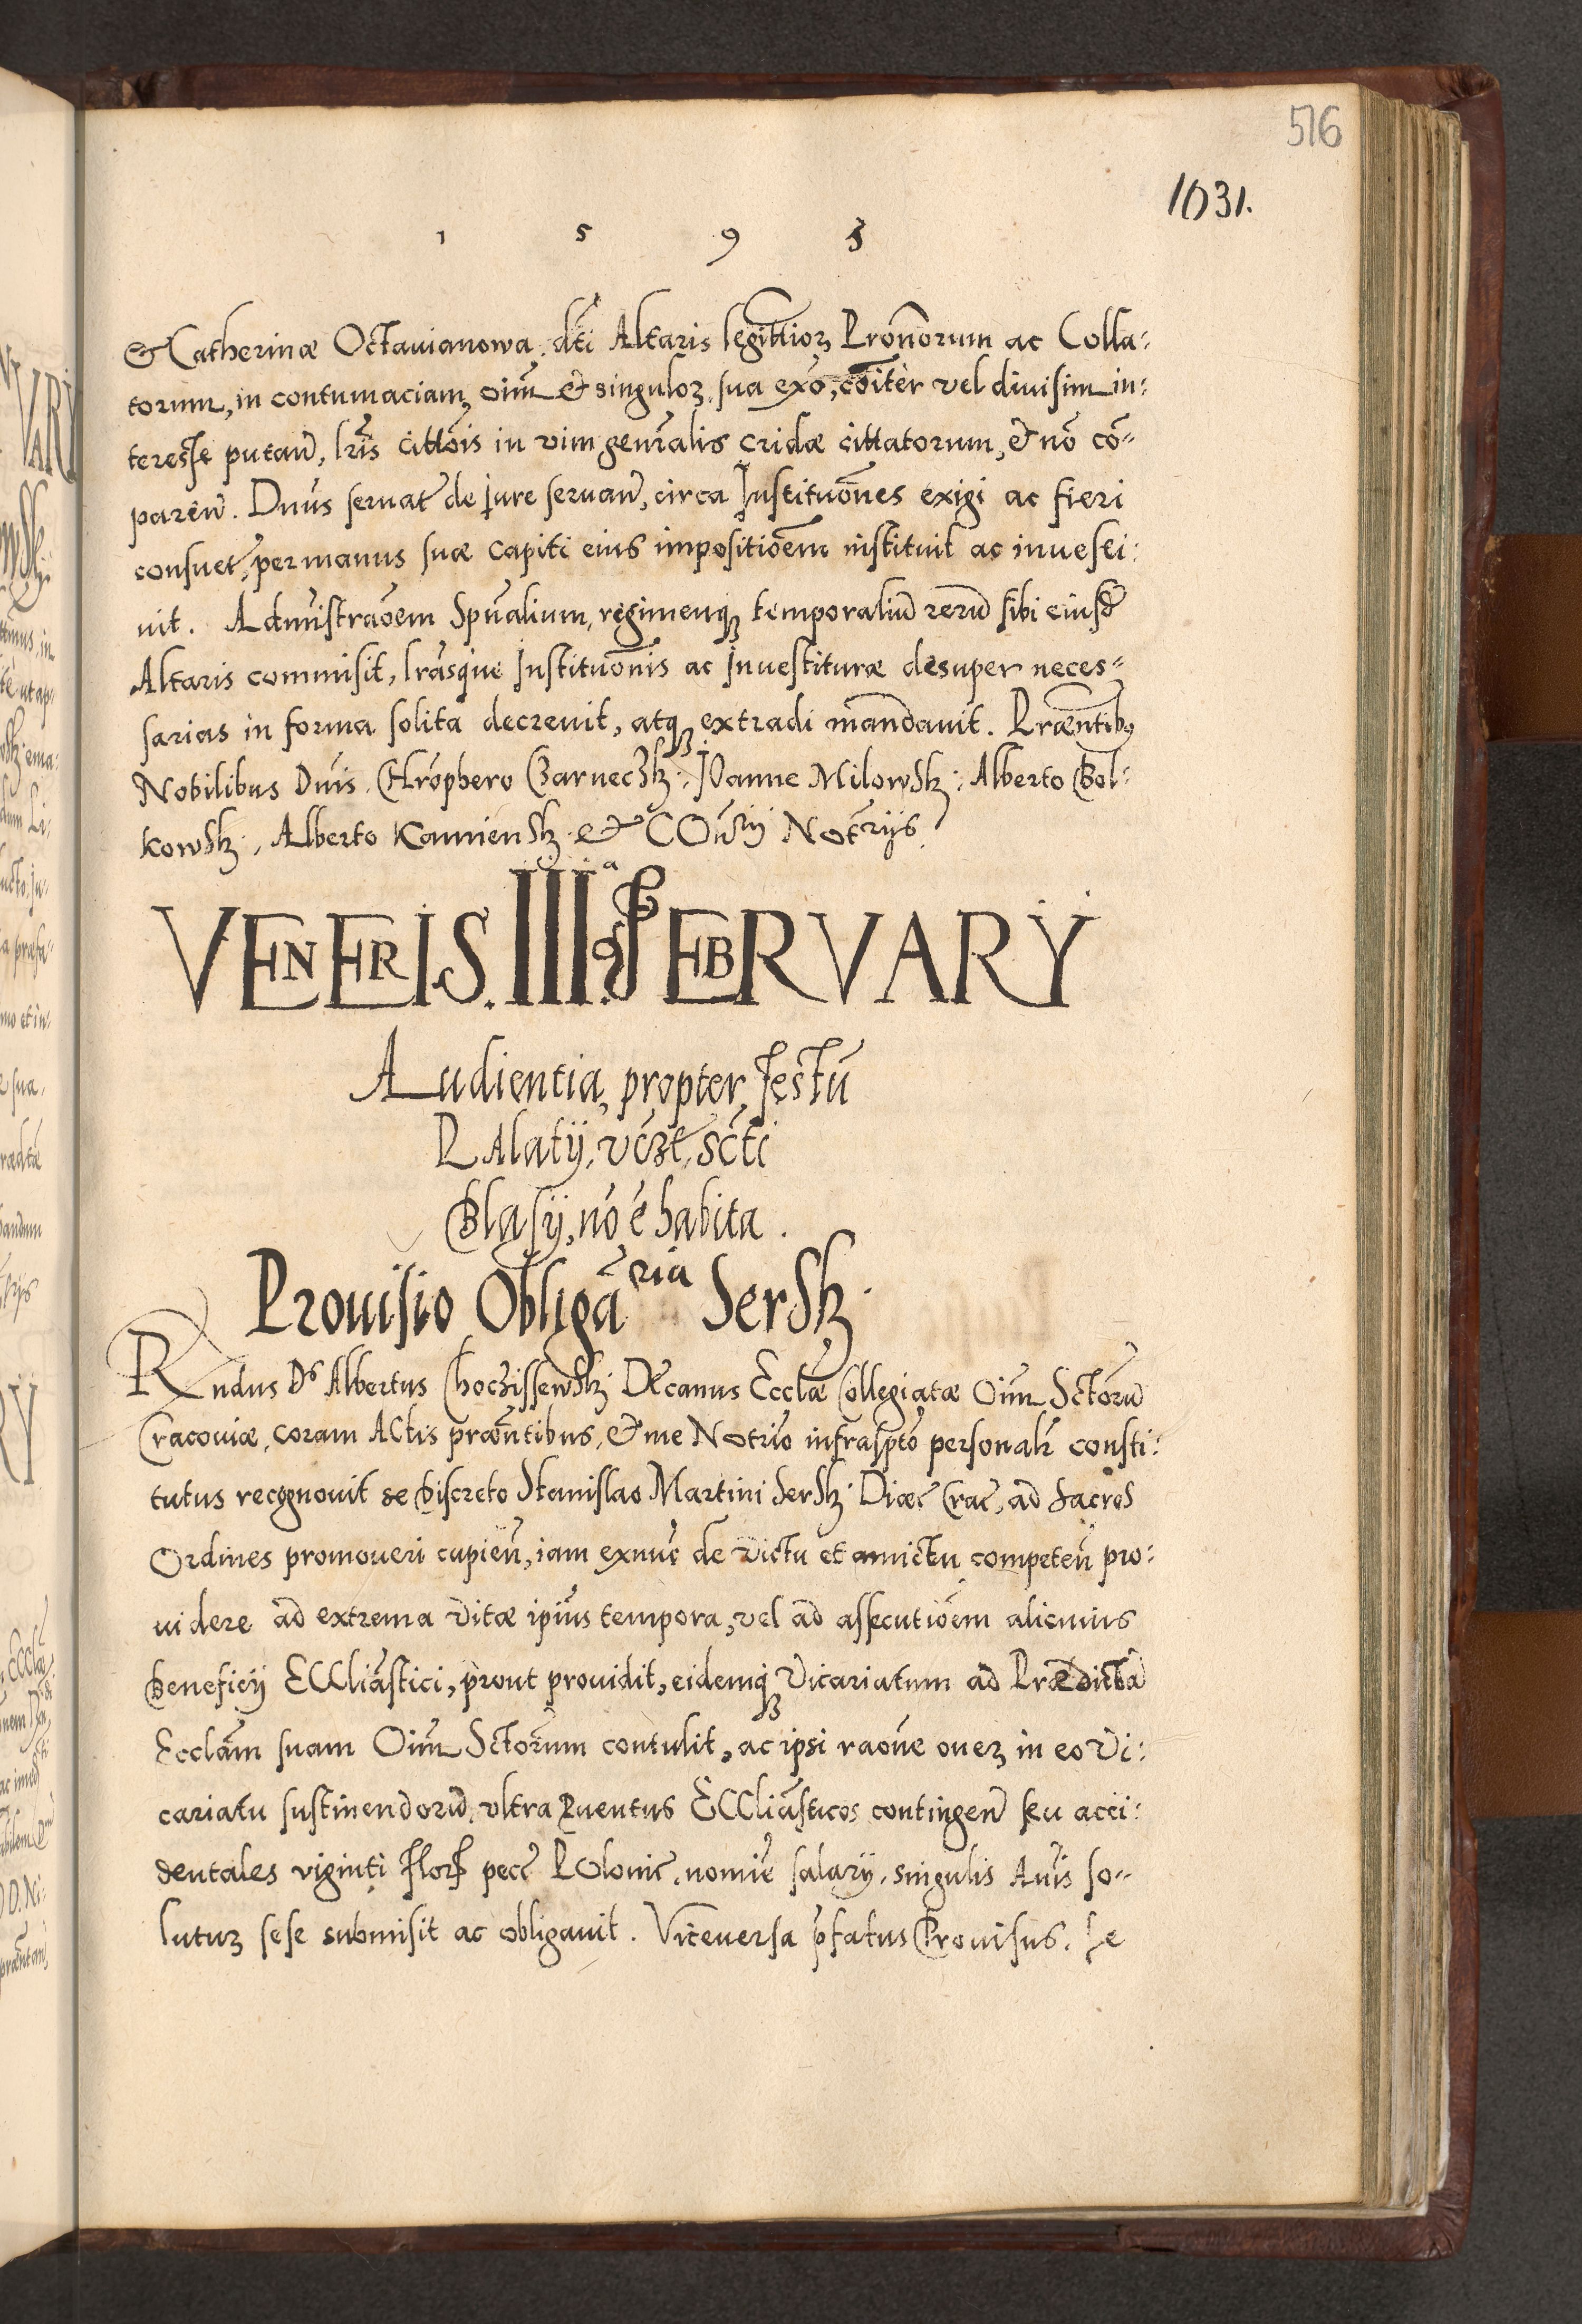 516
1031.
1 5 9 5
& Catherinæ Octauianowa, dti Altaris legittior̃ Pronorum ac Colla:
torum, in contumaciam oim̃ et singulor̃, sua exõ, cõiter vel diuisim in:
teresse putañ, lrĩs cittõis in vim genralis cridæ cittatorum, et nõ cõ=
parẽñ. Dnũs seruat̃ de jure seruañ, circa Instituõnes exigi ac fieri
consuet̃, per manus suæ capiti eius impositiõem instituit ac inuesti:
uit. Adm̃istraõem Spũalium, regimenq̃ temporaliũ rerũ sibi eiusd̃
Altaris commisit, lrãsque Instituõnis ac Inuestituræ desuper neces=
sarias in forma solita decreuit, atq̃ extradi mandauit. Præñtib9
Nobilibus Dnĩs, Chrõphero Czarneczk: Joanne Milowsk: Alberto Bol:
kowsk:, Alberto Kamiensk: et COñsij Notr̃ijs.
VENERIS. IIIa. FEBRVARY
Audientia, propter, festũ
PAlatij, vcz̃t, Sc̃ti
Blasij, nõ ẽ habita.
Prouisio Obligãria Sersk:
Rndus Ds Albertus Choczissewsk: Decanus Ecclæ Collegiatæ Oim̃ Sctorũ
Cracouiæ, coram Actis præñtibus, et me Notrĩo infrasp̃to personalr̃ consti:
tutus recognouit se discreto Stanislao Martini Sersk: Diœc̃ Crac̃, ad Sacros
Ordines promoueri cupieñ, iam exnũc de victu et amictu competeñ pro:
uidere ad extrema vitæ ipĩus tempora, vel ad assecutiõem alicuius
Beneficij ECCliãstici, prout prouidit, eidemq̃ Vicariatum ad Prædictã
Ecclãm suam Oim̃ Sctorum contulit, ac ipsi raõne oner̃ in eo Vi:
cariatu sustinendorũ, vltra Prouentus ECCliãsticos contingeñ seu acci:
dentales viginti flor̃ pec̃ POlonic̃, nomĩe salarij, singulis Anĩs so=
lutur̃ sese submisit ac obligauit. Viceuersa p̃fatus Prouisus, se